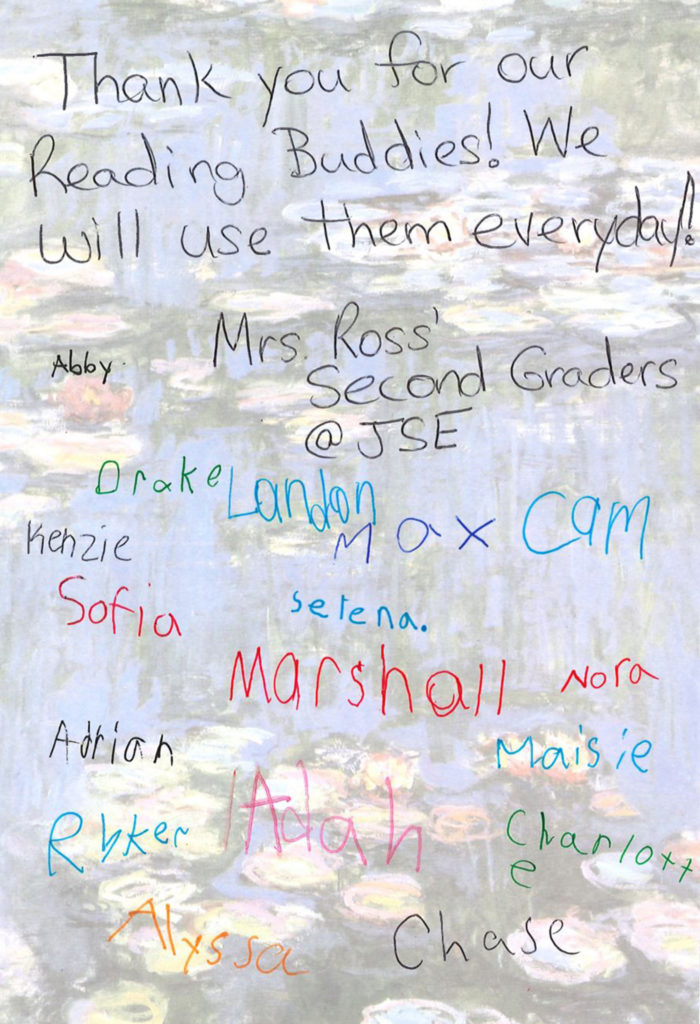 Thank you for our
Reading Buddies! We
will use them everyday!
Mrs. Ross'
Abby.
Second Graders
@ JSE
Drake Landon
Max Cam
Kenzie
Sofia
Selena.
Marshall
Nora
Adrian
Maisie
Adah
Ryker
Charlott
e
Alyssa
Chase